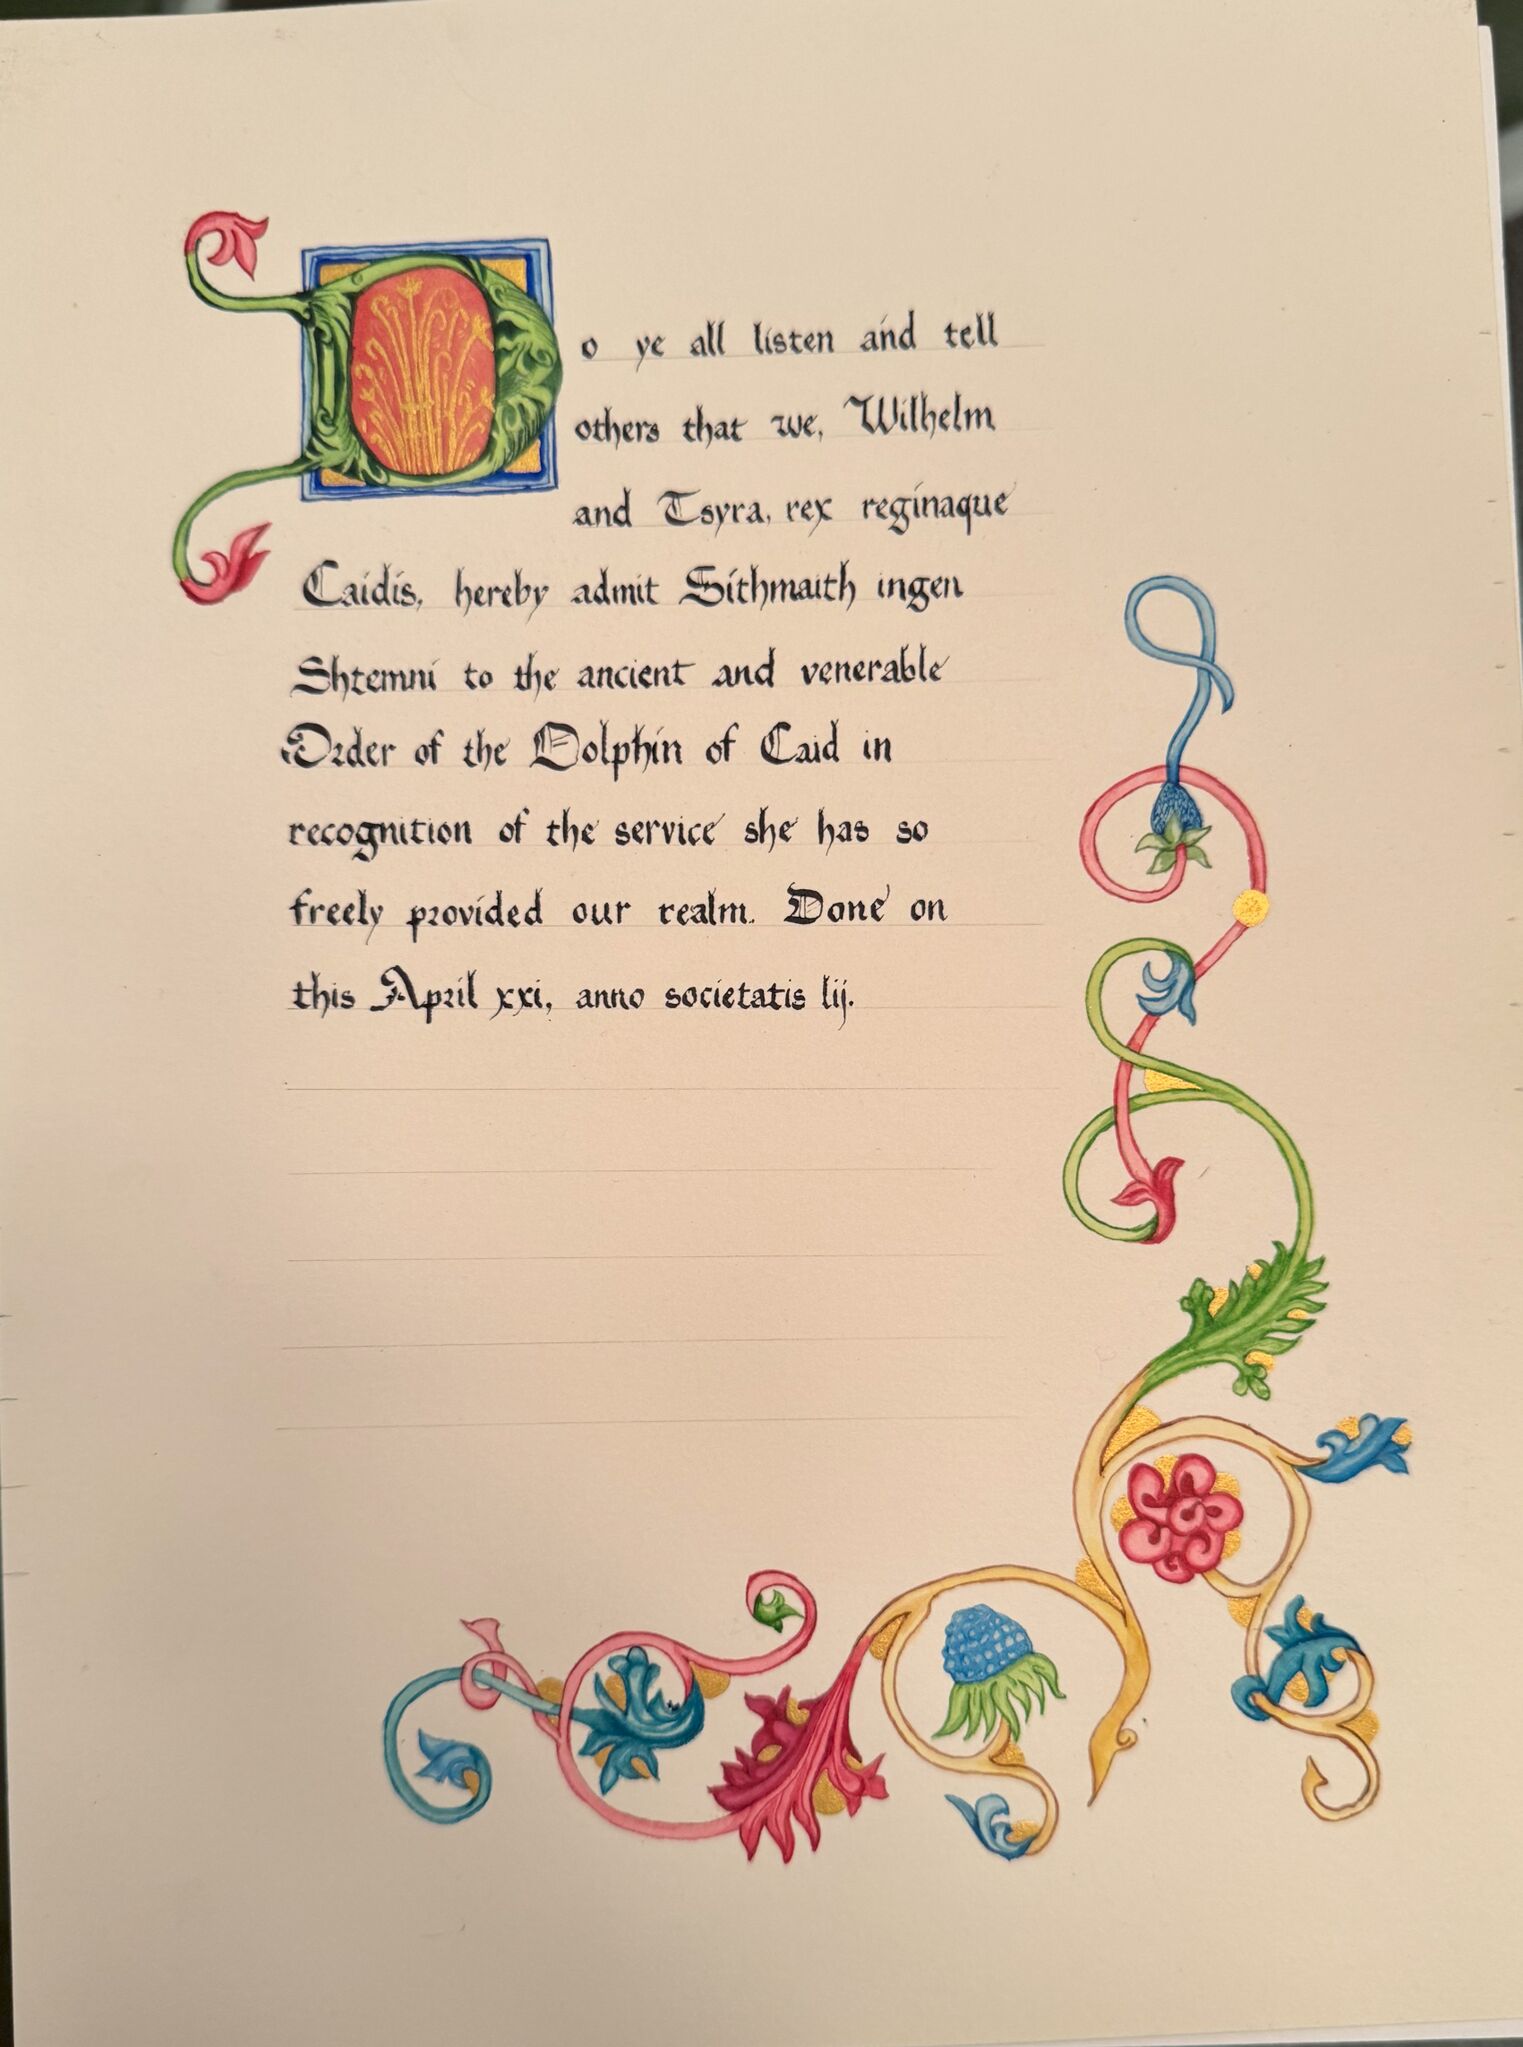 Do ye all listen and tell
others that we, Wilhelm
and Tsyra, rex reginaque
Caidis, hereby admit Sithmaith ingen
Shtemni to the ancient and venerable
Order of the Dolphin of Caid in
recognition of the service she has so
freely provided our realm. Done on
this April xxi, anno societatis lij.